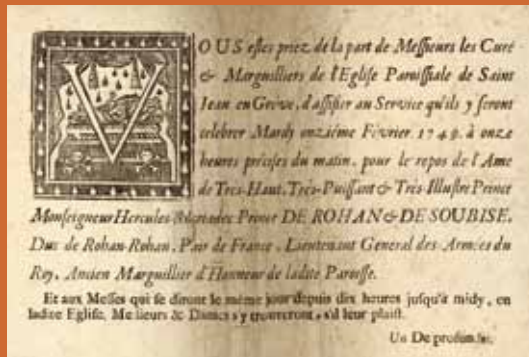 VOUS estes priez de la part de Messieurs les Curé
& Marguilliers de l'Eglise Paroissiale de Saint
Jean en Gréve, d'assister au Service qu'ils y feront
celebrer Mardy onziéme Février 1749. à onze
heures précises du matin, pour le repos de l'Ame
de Tres-Haut, Tres-Puissant & Tres-Illustre Prince
Monseigneur Hercules Prince DE ROHAN & DE SOUBISE,
Duc de Rohan-Rohan, Pair de France, Lieutenant General des Armées du
Roy, Ancien Marguillier d'Honneur de ladite Paroisse.
Et aux Messes qui se diront le même jour depuis dix heures jusqu'à midy, en
ladite Eglise, Messieurs & Dames s'y trouveront, s'il leur plaist.
Un De profundis.